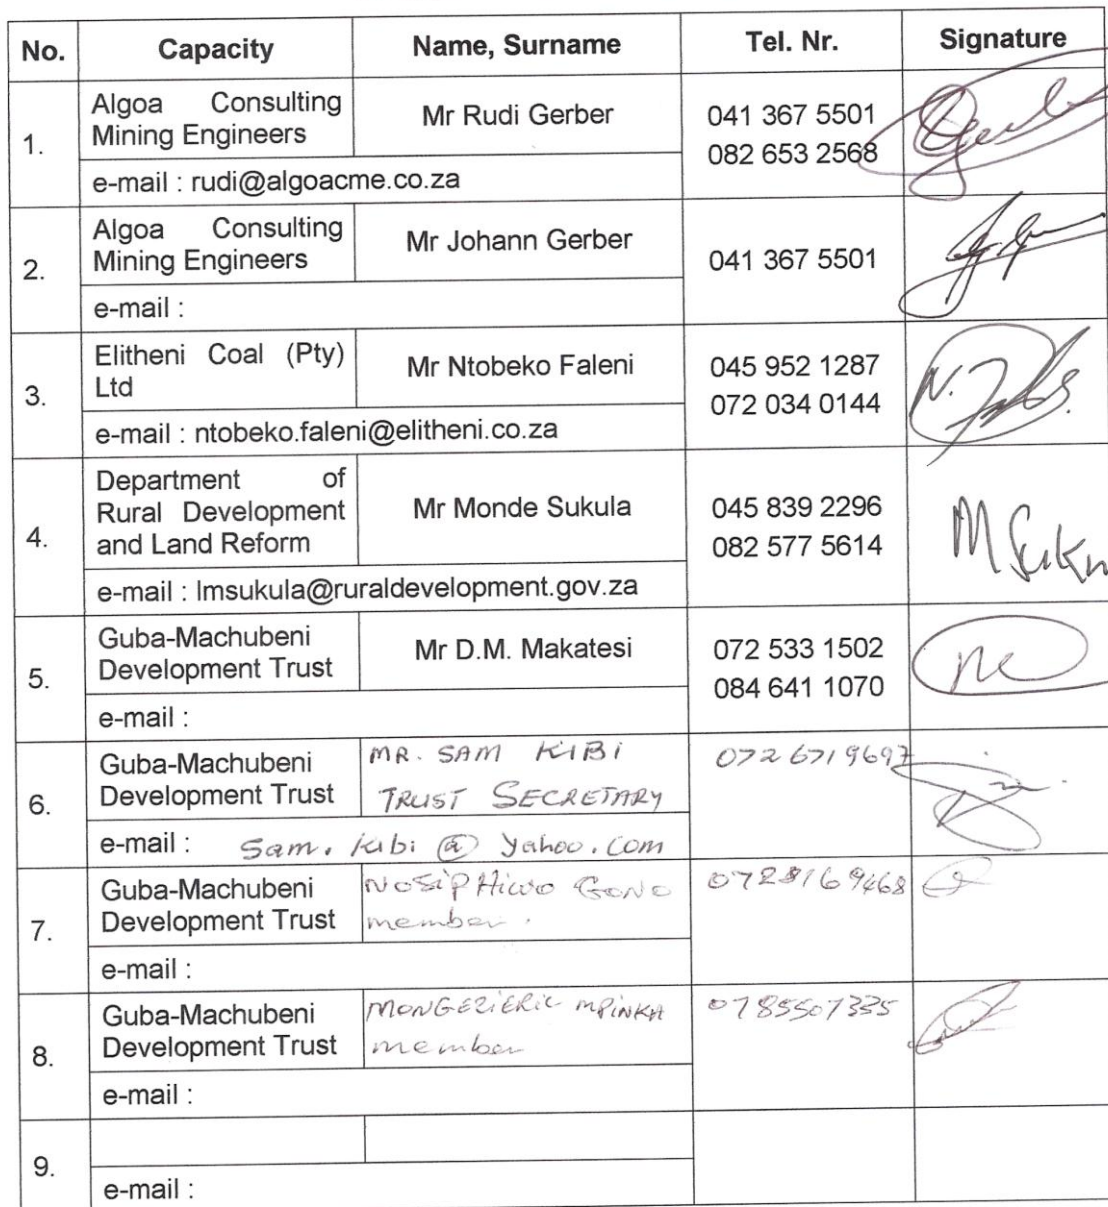 No. Capacity Name, Surname Tel. Nr. Signature
1.
Algoa Consulting
Mining Engineers
Mr Rudi Gerber
041 367 5501
082 653 2568
e-mail : rudi@algoacme.co.za
2.
Algoa Consulting
Mining Engineers
Mr Johann Gerber
041 367 5501
e-mail :
3.
Elitheni Coal (Pty)
Ltd
Mr Ntobeko Faleni
045 952 1287
072 034 0144
e-mail : ntobeko.faleni@elitheni.co.za
4.
Department of
Rural Development
and Land Reform
Mr Monde Sukula
045 839 2296
082 577 5614
e-mail : lmsukula@ruraldevelopment.gov.za
5.
Guba-Machubeni
Development Trust
Mr D.M. Makatesi
072 533 1502
084 641 1070
e-mail :
6.
Guba-Machubeni
Development Trust
MR. SAM KIBI
TRUST SECRETARY
0726719697
e-mail : Sam.kibi@yahoo.com
7.
Guba-Machubeni
Development Trust
NOSIPHIWO GONO
member.
0728169468
e-mail :
8.
Guba-Machubeni
Development Trust
MONGEZIERIC MPINKA
member
0785507335
e-mail :
9.
e-mail :